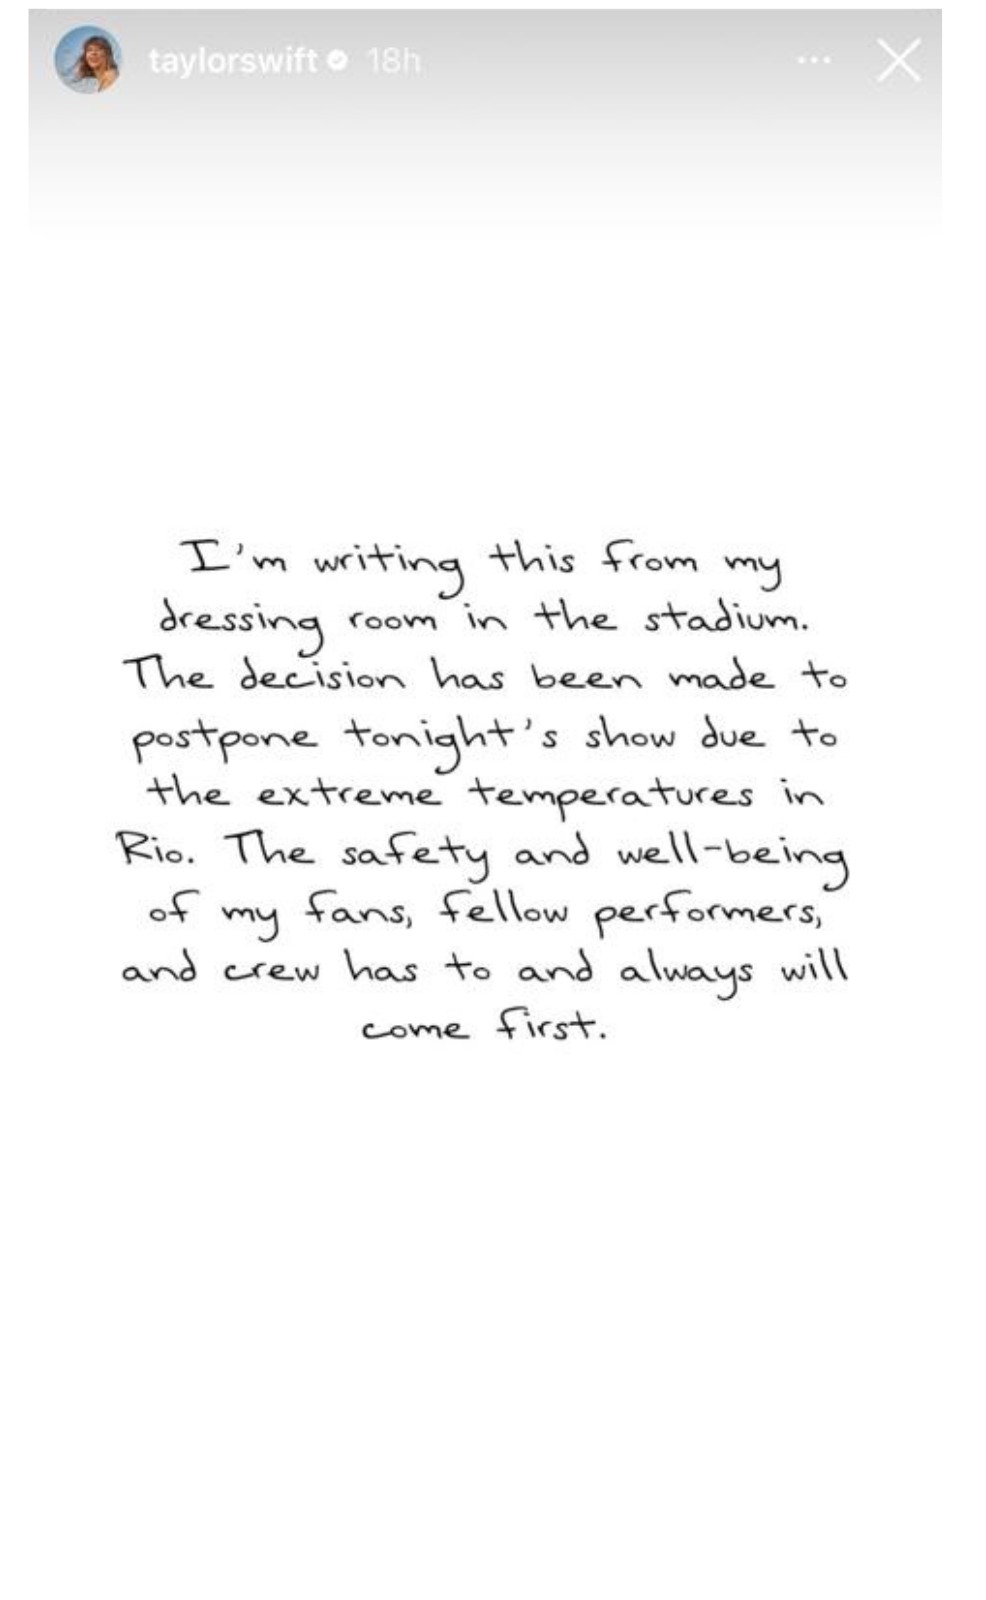 taylorswift 18h
I'm writing this from my
dressing room in the stadium.
The decision has been made to
postpone tonight's show due to
the extreme temperatures in
Rio. The safety and well-being
of my fans, fellow performers,
and crew has to and always will
come first.